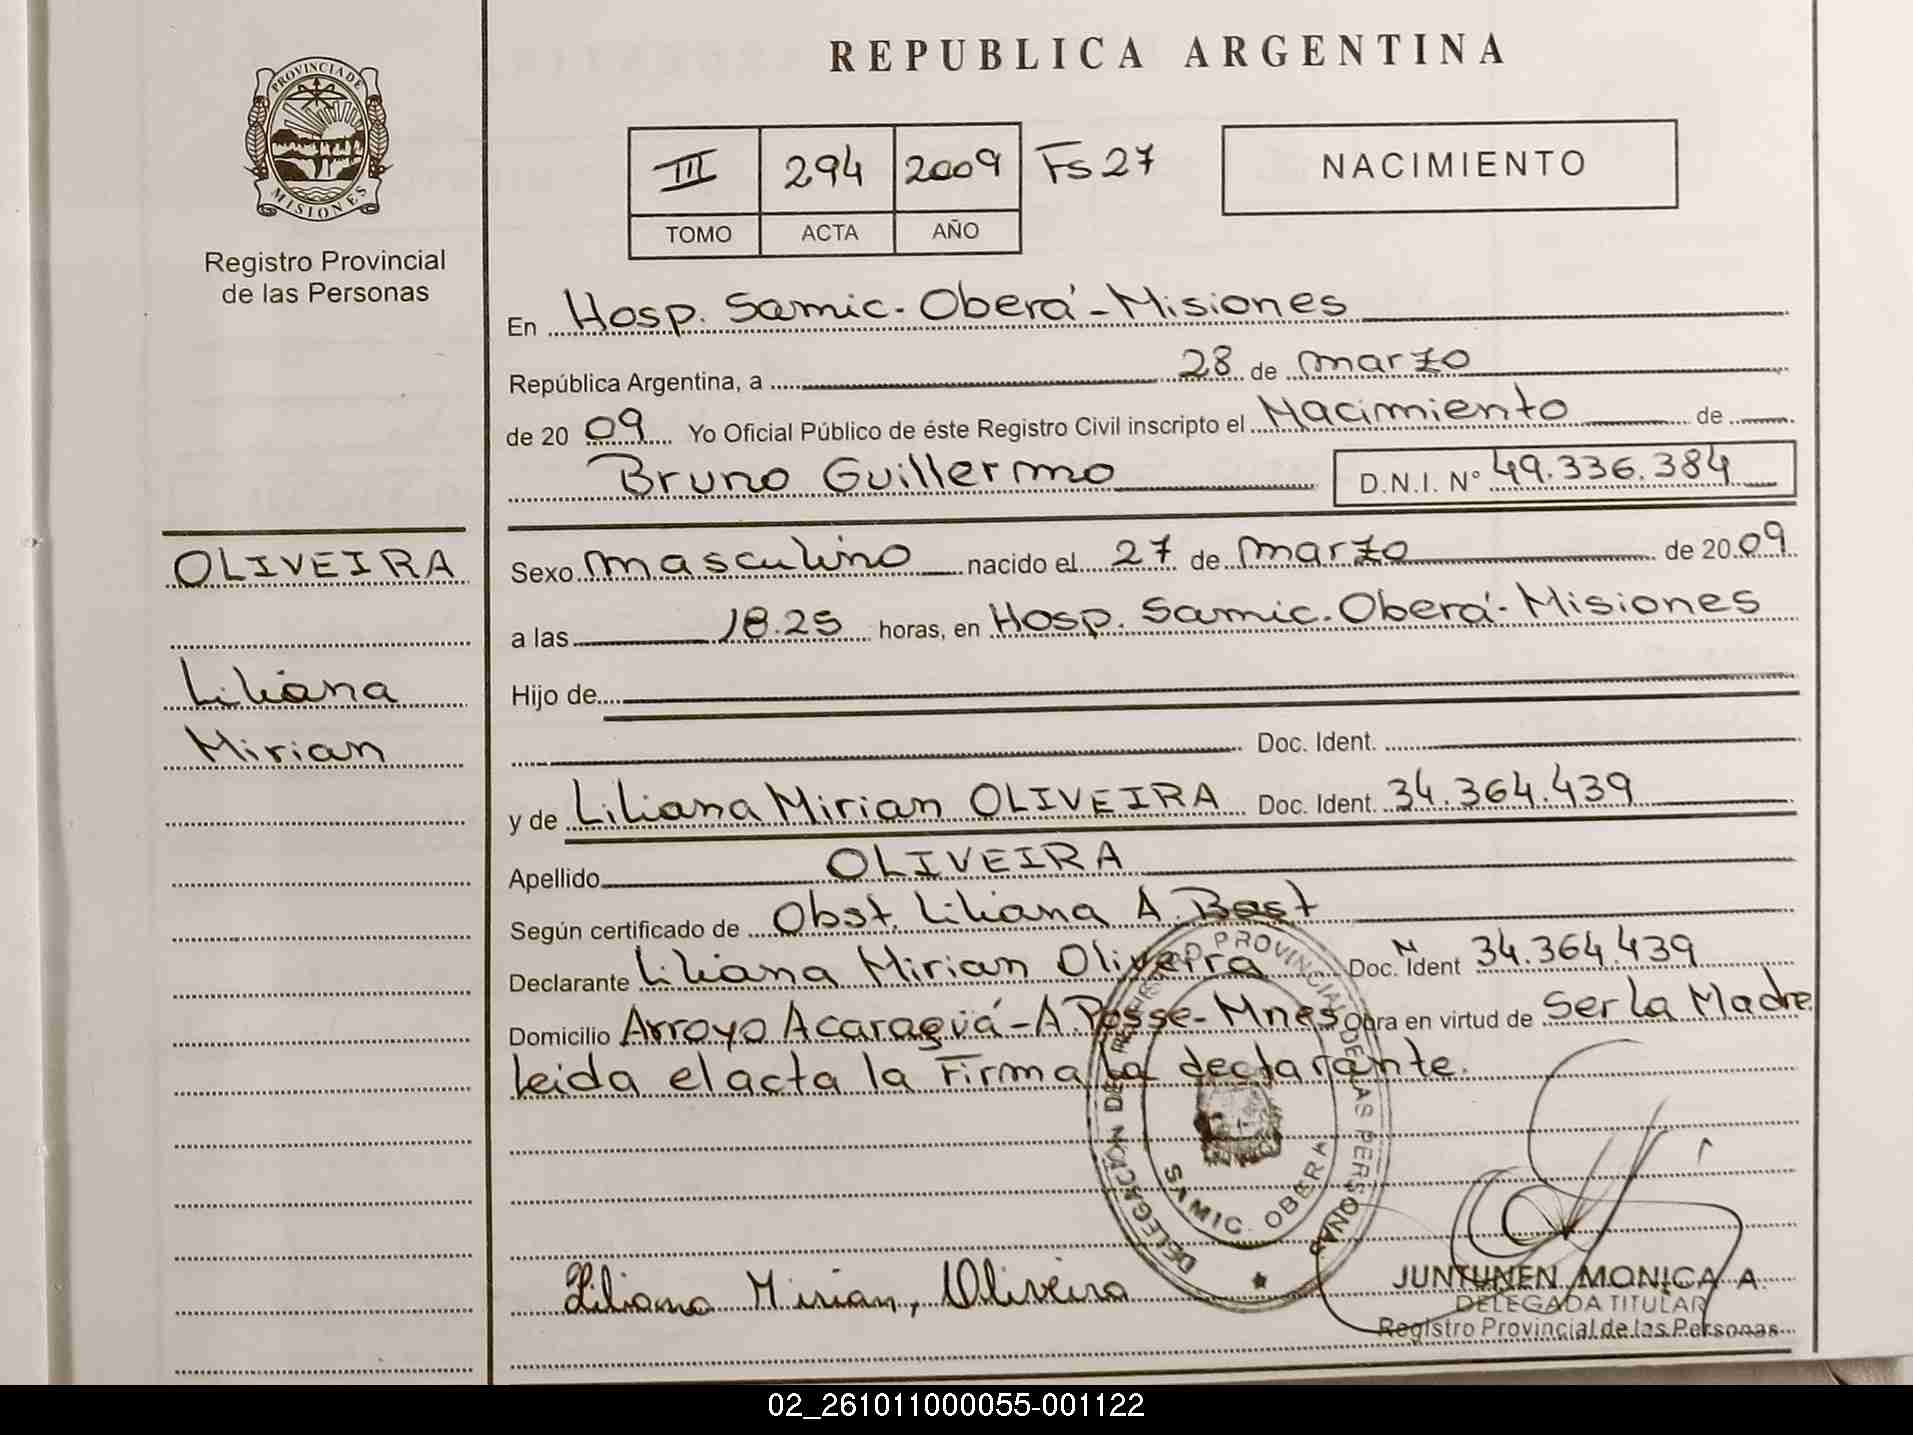 REPUBLICA ARGENTINA
PROVINCIA DE
MISIONES
Registro Provincial
de las Personas
III 294 2009 Fs 27
TOMO ACTA AÑO
NACIMIENTO
En Hosp. Samic - Oberá - Misiones
República Argentina, a 28 de marzo
de 2009 Yo Oficial Público de éste Registro Civil inscripto el Nacimiento de
Bruno Guillermo D.N.I. N° 49.336.384
OLIVEIRA
Liliana
Mirian
Sexo masculino nacido el 27 de marzo de 2009
a las 18.25 horas, en Hosp. Samic. Oberá - Misiones
Hijo de
Doc. Ident.
y de Liliana Mirian OLIVEIRA Doc. Ident. 34.364.439
Apellido OLIVEIRA
Según certificado de Obst. Liliana A. Bast
Declarante Liliana Mirian Oliveira Doc. N Ident 34.364.439
Domicilio Arroyo Acaraguá - A Posse - Mnes Obra en virtud de Ser la Madre
leida el acta la Firma la declarante.
DELEGACIÓN DE REGISTRO PROVINCIAL DE LAS PERSONAS
SAMIC. OBERA
Liliana Mirian, Oliveira
JUNTUNEN MONICA A.
DELEGADA TITULAR
Registro Provincial de las Personas
02_261011000055-001122